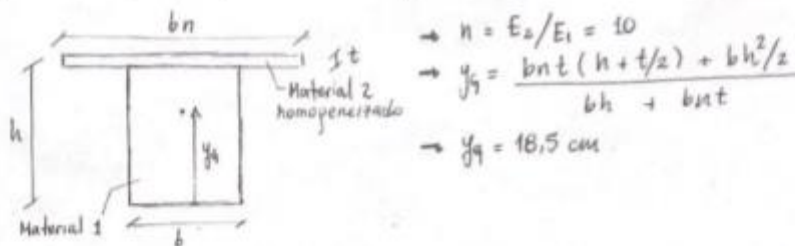 bn
t
h
Material 2
homogeneizado
yg
Material 1
b
→ n = E₂/E₁ = 10
→ yg = bnt (h + t/2) + bh²/2
bh + bnt
→ yg = 18,5 cm